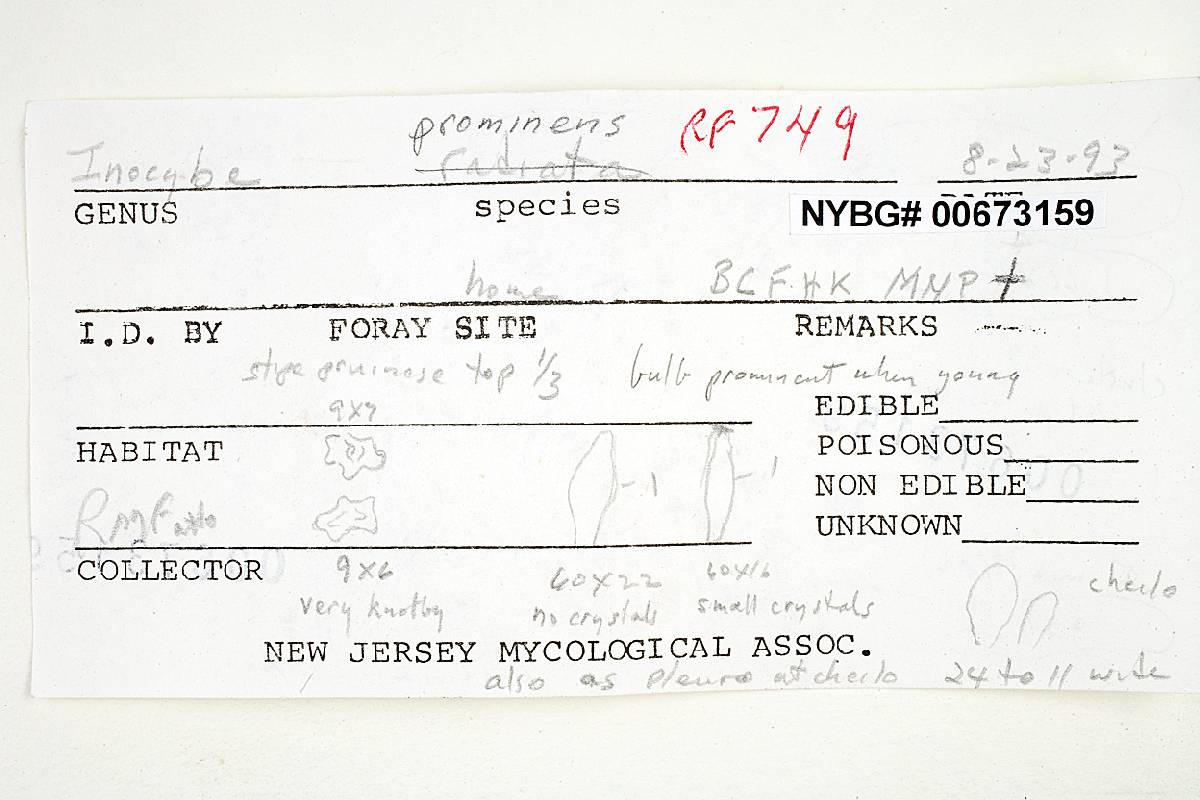 prominens RF 749
Inocybe radiata 8-23-93
GENUS species NYBG# 00673159
home BCF.HK MNP +
I.D. BY FORAY SITE REMARKS
stipe pruinose top 1/3 bulb prominent when young
9x7 EDIBLE
HABITAT POISONOUS
1 1
NON EDIBLE
RMF
UNKNOWN
COLLECTOR 9x6 60x22 60x16 cheilo
very knobby no crystals small crystals
NEW JERSEY MYCOLOGICAL ASSOC.
also as pleuro at cheilo 24 to 11 wide